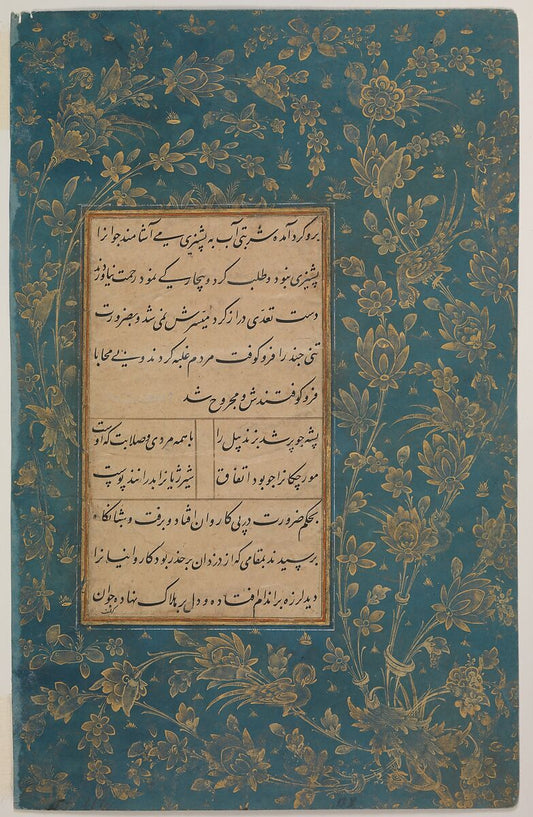 برو گرد آمده شربتی آب به پشیزی می آشامند جوانرا
پشیزی نبود و طلب کرد و بیچارگی نمود رحمت نیاوردند
دست تعدی دراز کرد میسرش نمی شد و بضرورت
تنی چند را فرو کوفت مردم غلبه کردند و بی محابا
فرو کوفتندش و مجروح شد
پشه چو پر شد بزند پیل را با همه مردی و صلابت که اوست
مورچگانرا چو بود اتفاق شیر ژیانرا بدرانند پوست
بحکم ضرورت در پی کاروان افتاد و برفت و شبانگاه
برسیدند بمقامی که از دزدان پر حذر بود کاروانیانرا
دید لرزه بر اندام فتاده و دل بر هلاک نهاده جوان
گفت